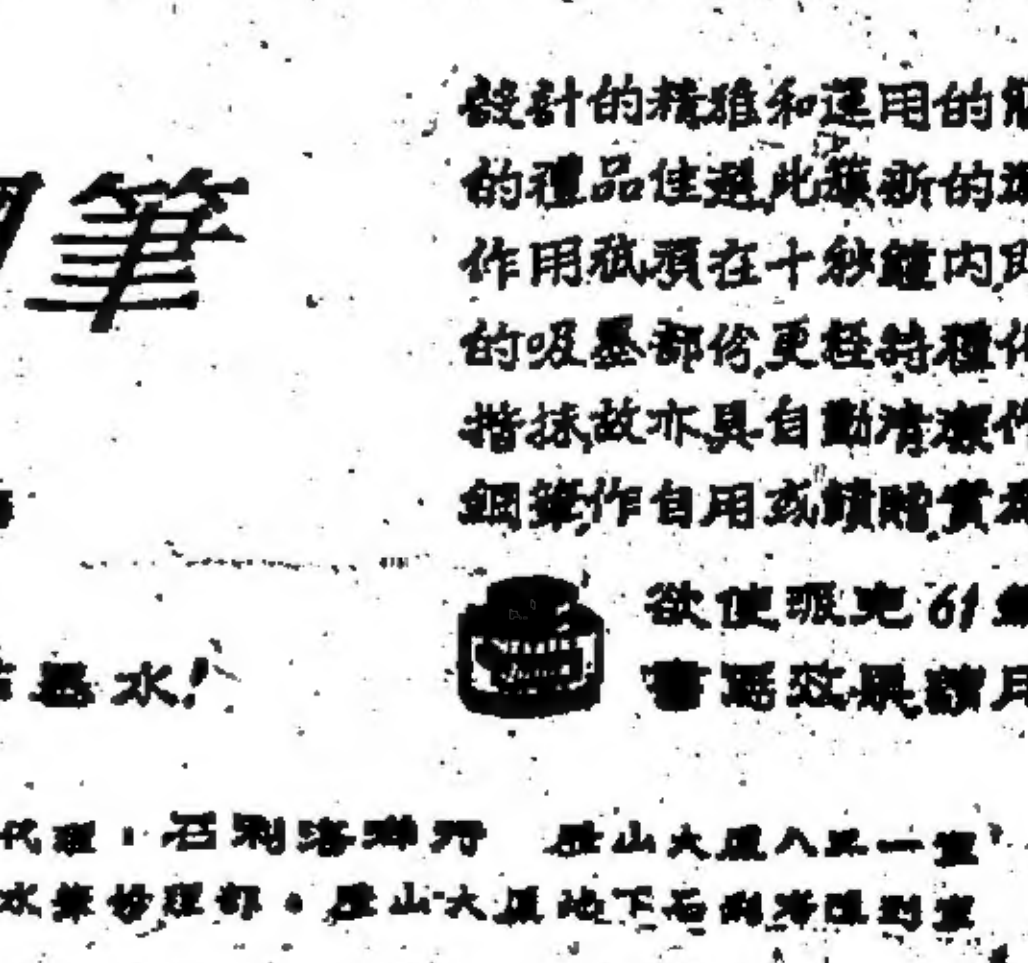 筆
設計的精雅和運用的
的禮品佳選此嶄新的
作用祇須在十秒鐘內
的吸墨部份更經特種
揩抹故亦具自動清潔作
鋼筆作自用或饋贈
欲使派克61
書寫效果請用
墨水!
代理:石利洛 行 歷山大廈八 一室
水筆修理部 歷山大廈地下石利洛陳列室